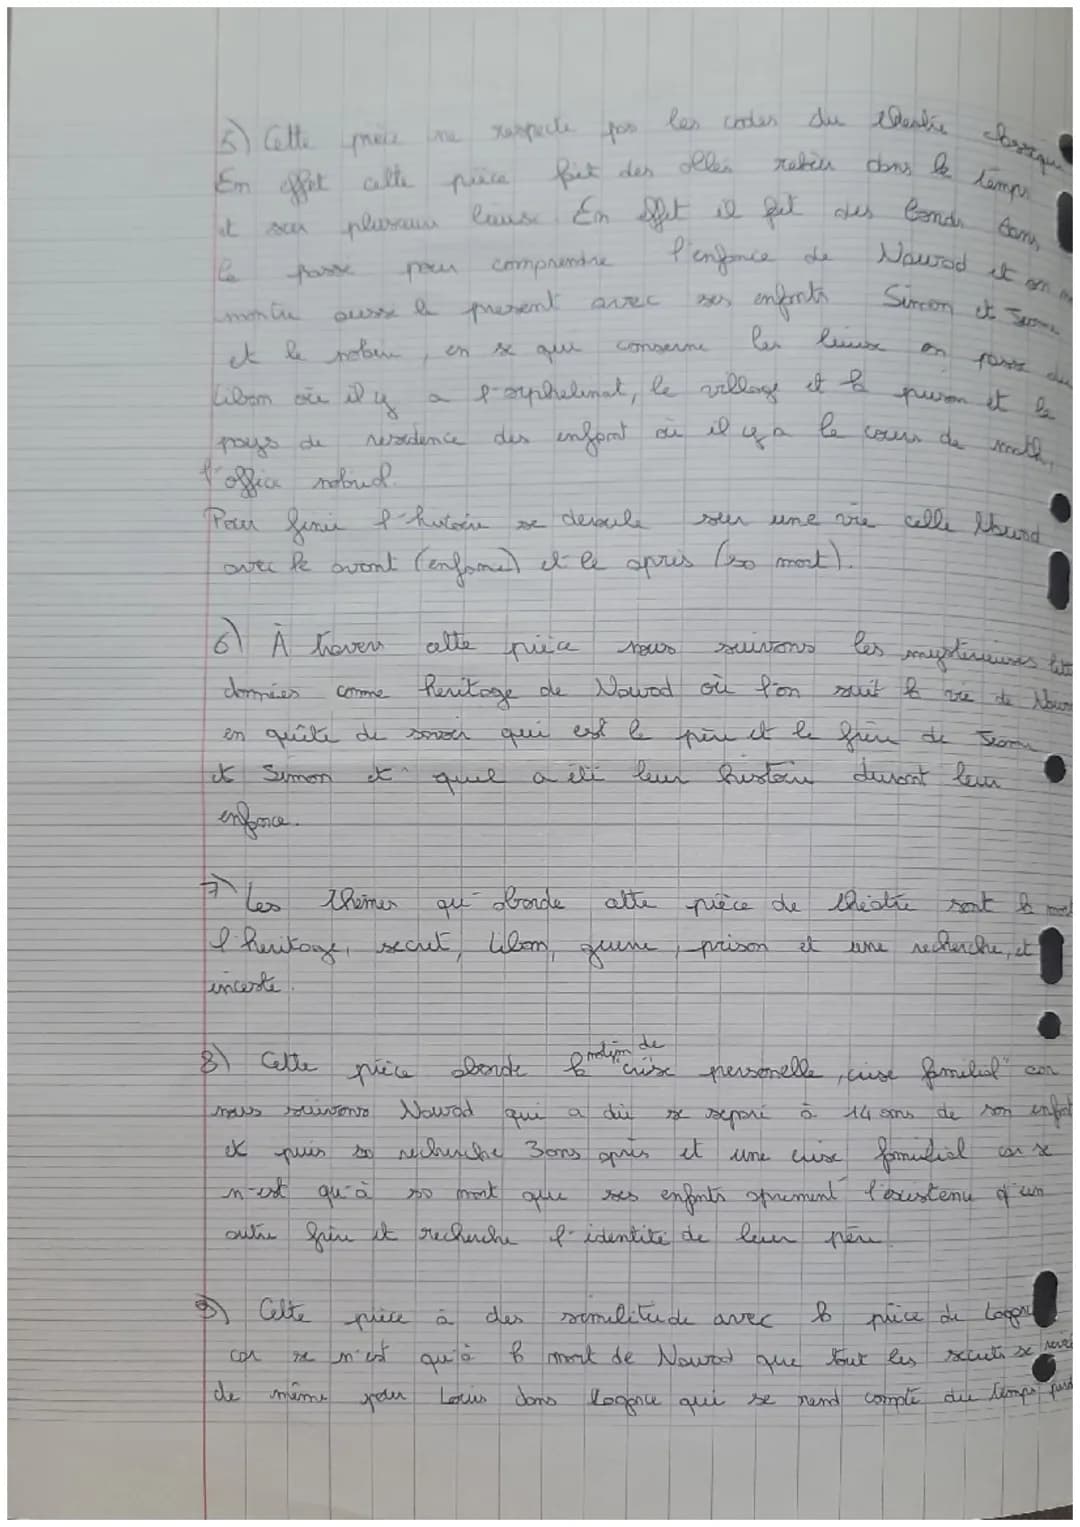 5) Cette pièce ne respecte pas les codes du théatre classique
En effet cette pièce fait des aller retour dans le temps
et sur plusieurs lieux. En effet il fait des bonds dans
le passé pour comprendre l'enfance de Nawad et on
montre aussi le present avec ses enfants Simon et
et le notaire, en se qui conserne les lieux on passe du
Liban où il y a l'orphelinat, le village et la prison et le
pays de residence des enfant où il y a le cours de math,
l'office
Pour finir l'histoire se deroule sur une vie celle Nawad
avec le avant (enfance) et le apres (sa mort).
6) À travers cette pièce nous suivons les mysterieuses
données comme heritage de Nawad où l'on suit la vie de
en quête de savoir qui est le père et le frère de
et Simon et quel a été leur histoire durant leur
enfance.
7) Les thèmes qu'aborde cette pièce de théatre sont la
l'heritage, secret, Liban, guerre, prison et une recherche, et
inceste.
8) Cette pièce aborde la notion de "crise personelle, crise familial" car
nous suivons Nawad qui a dû se separé à 14 ans de son enfant
et puis sa recherche 3 ans après et une crise familial car se
n'est qu'à sa mort que ses enfants aprennent l'existence d'un
autre frère et recherche l'identité de leur père
9) Cette pièce à des similitude avec la pièce de
car se n'est qu'à la mort de Nawad que tout les secrets se
de même pour Louis dans Lagarce qui se rend compte du temps